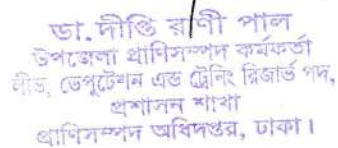 ডা. দীপ্তি রাণী পাল
উপজেলা প্রাণিসম্পদ কর্মকর্তা
লীভ, ডেপুটেশন এন্ড ট্রেনিং রিজার্ভ পদ,
প্রশাসন শাখা
প্রাণিসম্পদ অধিদপ্তর, ঢাকা।